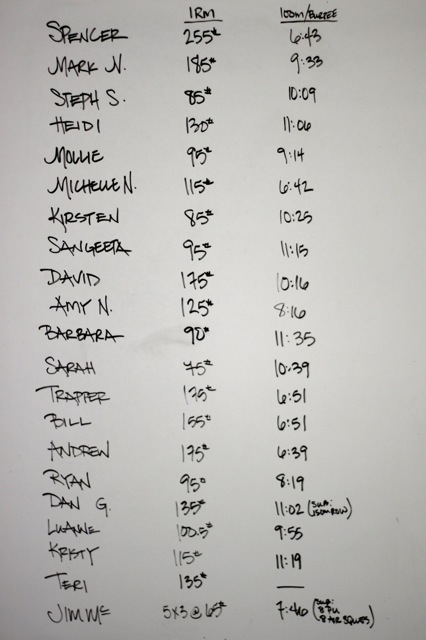 1RM 100M/BURPEE
SPENCER 255# 6:43
MARK N. 185# 9:33
STEPH S. 85# 10:09
HEIDI 130# 11:06
MOLLIE 95# 9:14
MICHELLE N. 115# 6:42
KIRSTEN 85# 10:25
SANGEETA 95# 11:15
DAVID 175# 10:16
AMY N. 125# 8:16
BARBARA 90# 11:35
SARAH 75# 10:39
TRAPPER 175# 6:51
BILL 155# 6:51
ANDREW 175# 6:39
RYAN 95# 8:19
DAN G. 135# 11:02 (SUB: 150M ROW)
LUANNE 100.5# 9:55
KRISTY 115# 11:19
TERI 135# —
JIM Mc 5x3 @ 65# 7:46 (SUB: 8 PU 8 AIR SQUATS)